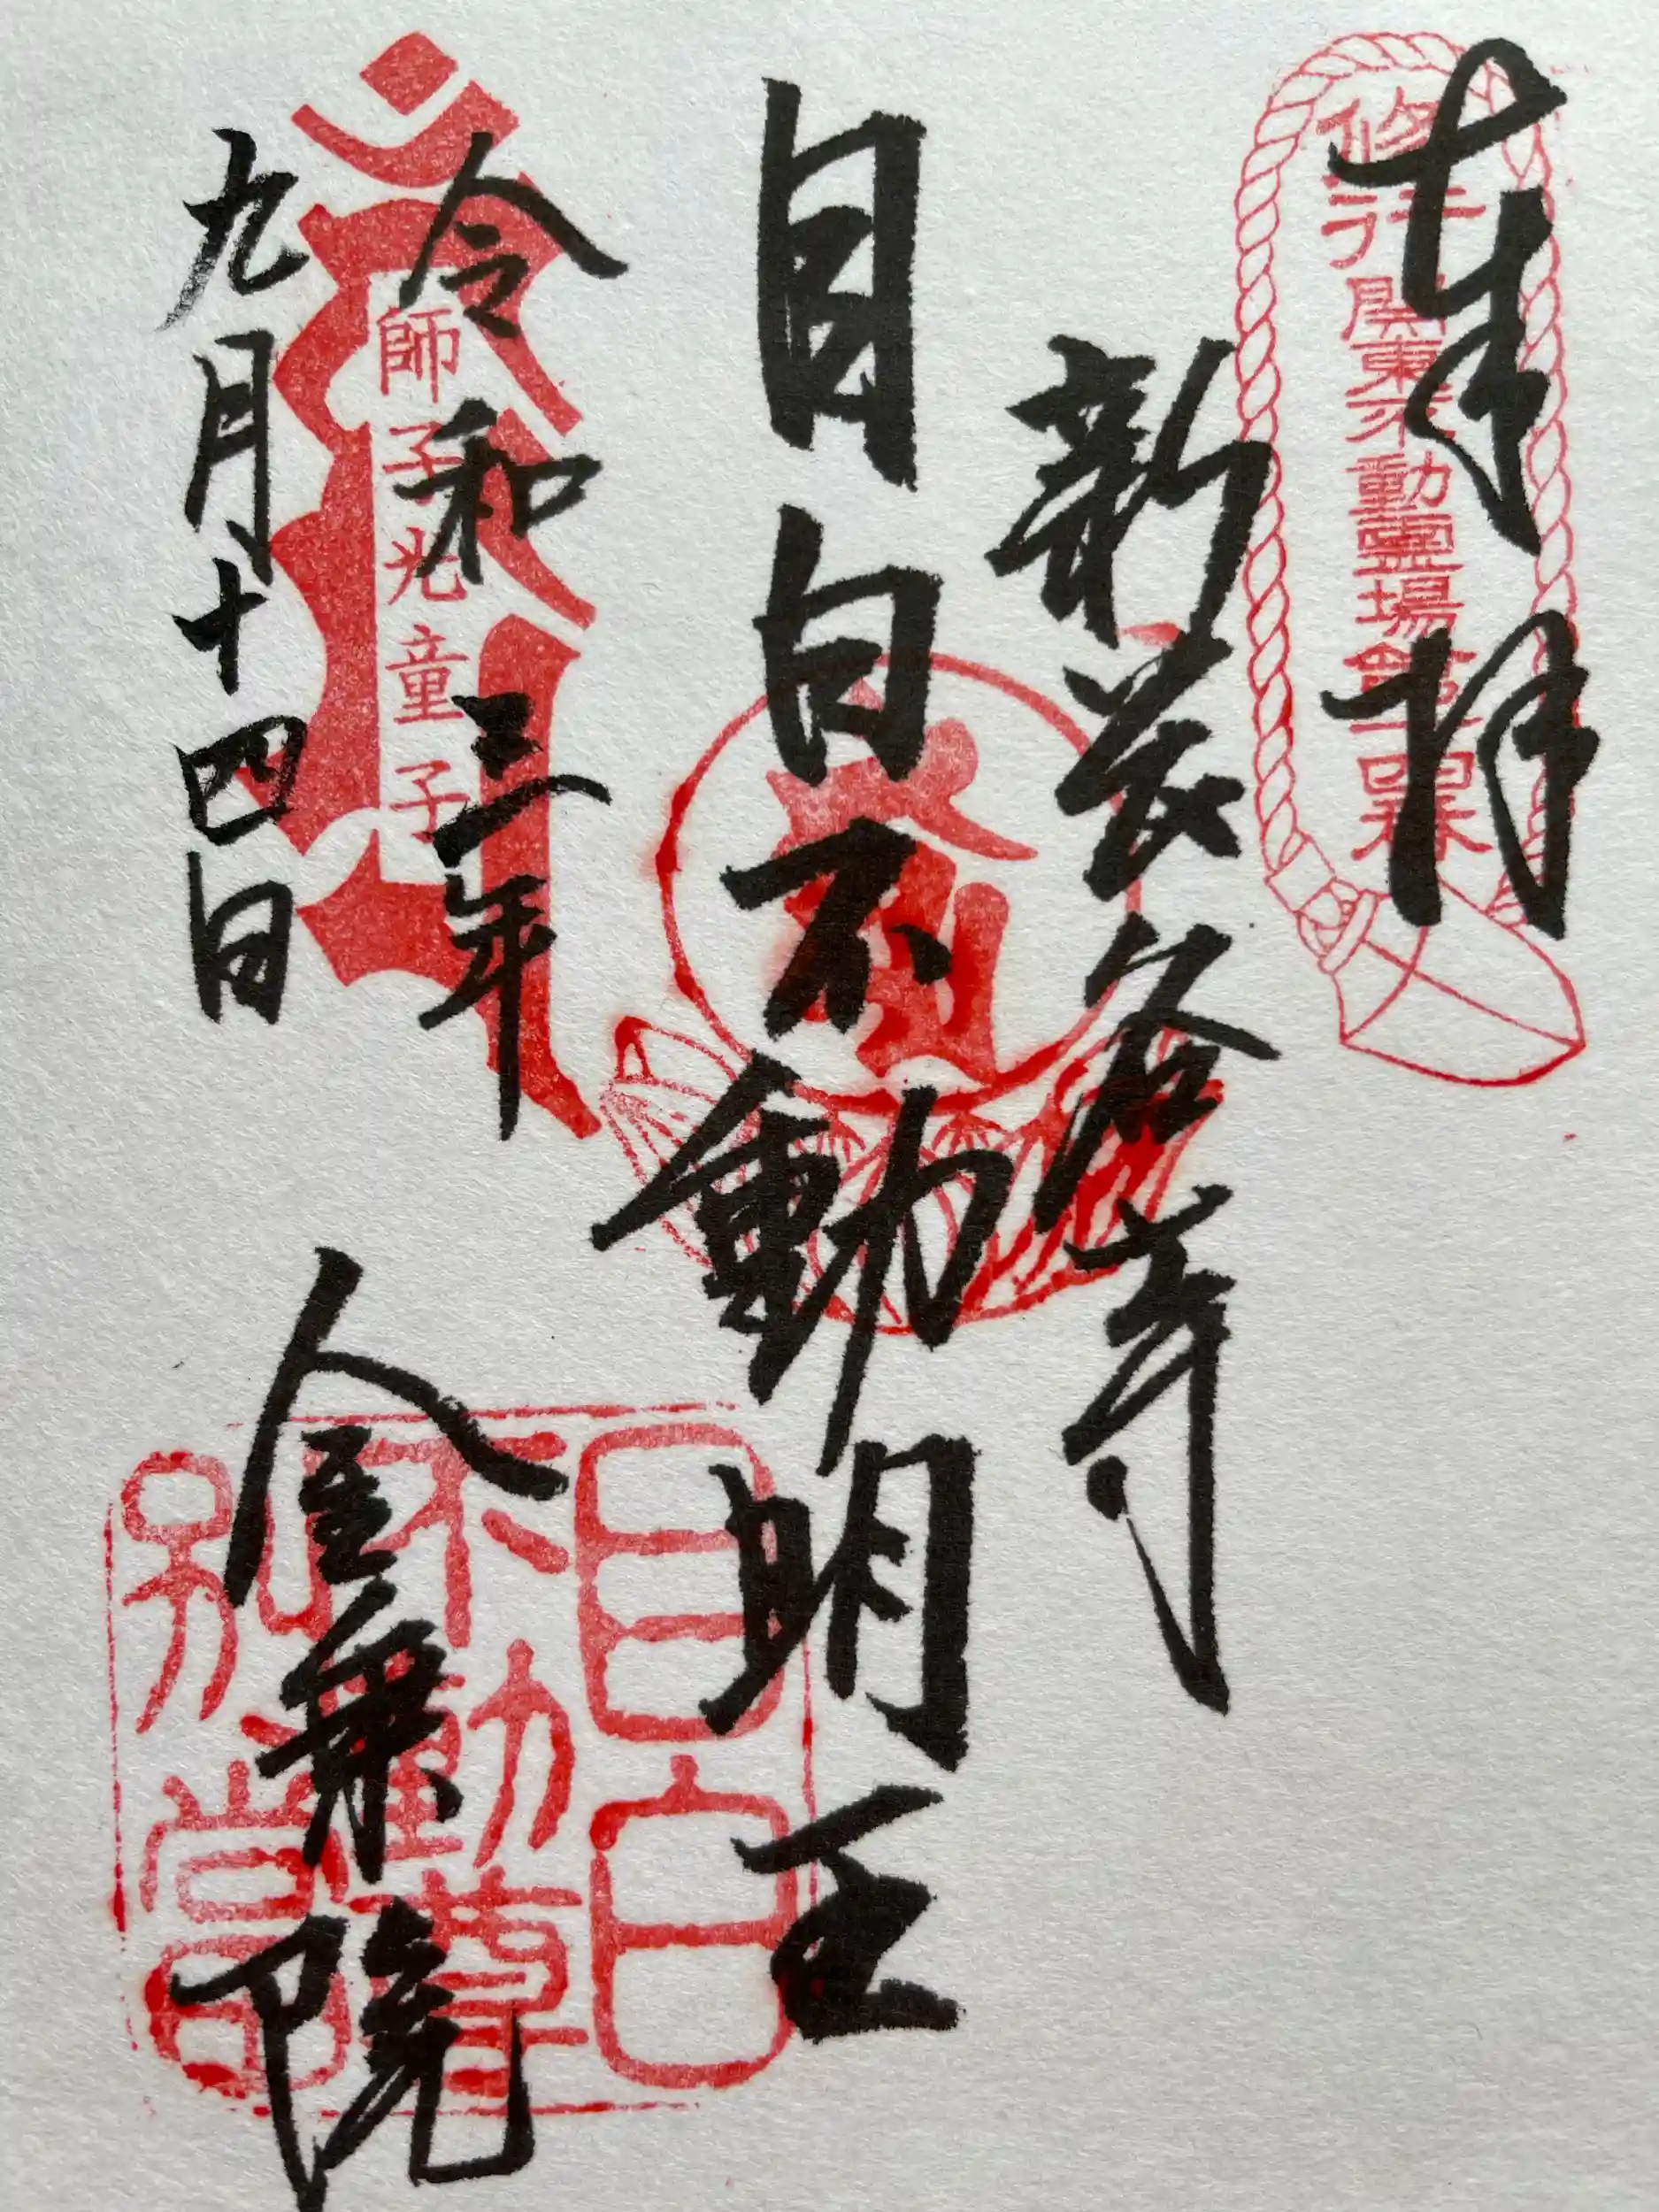 奉拝
修行關東不動靈場第十四番
新長谷寺
目白不動明王
令和三年
師子光童子
九月十四日
金乗院
目白
不動尊
別當